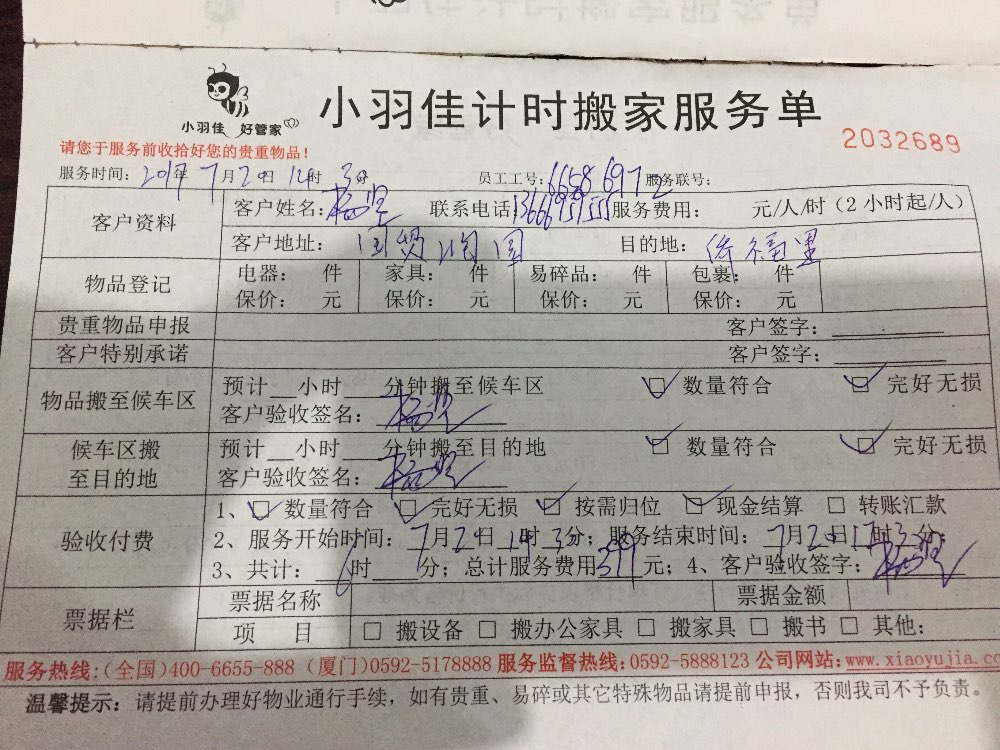 小羽佳 好管家
小羽佳计时搬家服务单
2032689
请您于服务前收拾好您的贵重物品！
服务时间：2017年7月2日 14时3分 员工工号：6658 6972 服务联号：
客户资料 客户姓名： 联系电话 服务费用： 元/人/时（2小时起/人）
客户地址：国贸 园 目的地：侨福里
物品登记 电器： 件 家具： 件 易碎品： 件 包裹： 件
保价： 元 保价： 元 保价： 元 保价： 元
贵重物品申报 客户签字：
客户特别承诺 客户签字：
物品搬至候车区 预计__小时___分钟搬至候车区 ☑ 数量符合 ☑ 完好无损
客户验收签名：
候车区搬至目的地 预计__小时___分钟搬至目的地 ☑ 数量符合 ☑ 完好无损
客户验收签名：
验收付费 1、☑ 数量符合 ☑ 完好无损 ☑ 按需归位 ☑ 现金结算 □ 转账汇款
2、服务开始时间：7月2日14时3分；服务结束时间：7月2日17时3分；
3、共计：6时___分；总计服务费用399元；4、客户验收签字：
票据栏 票据名称 票据金额
项 目 □ 搬设备 □ 搬办公家具 □ 搬家具 □ 搬书 □ 其他：
服务热线：(全国)400-6655-888 (厦门)0592-5178888 服务监督热线：0592-5888123 公司网站：www.xiaoyujia.co
温馨提示：请提前办理好物业通行手续，如有贵重、易碎或其它特殊物品请提前申报，否则我司不予负责。